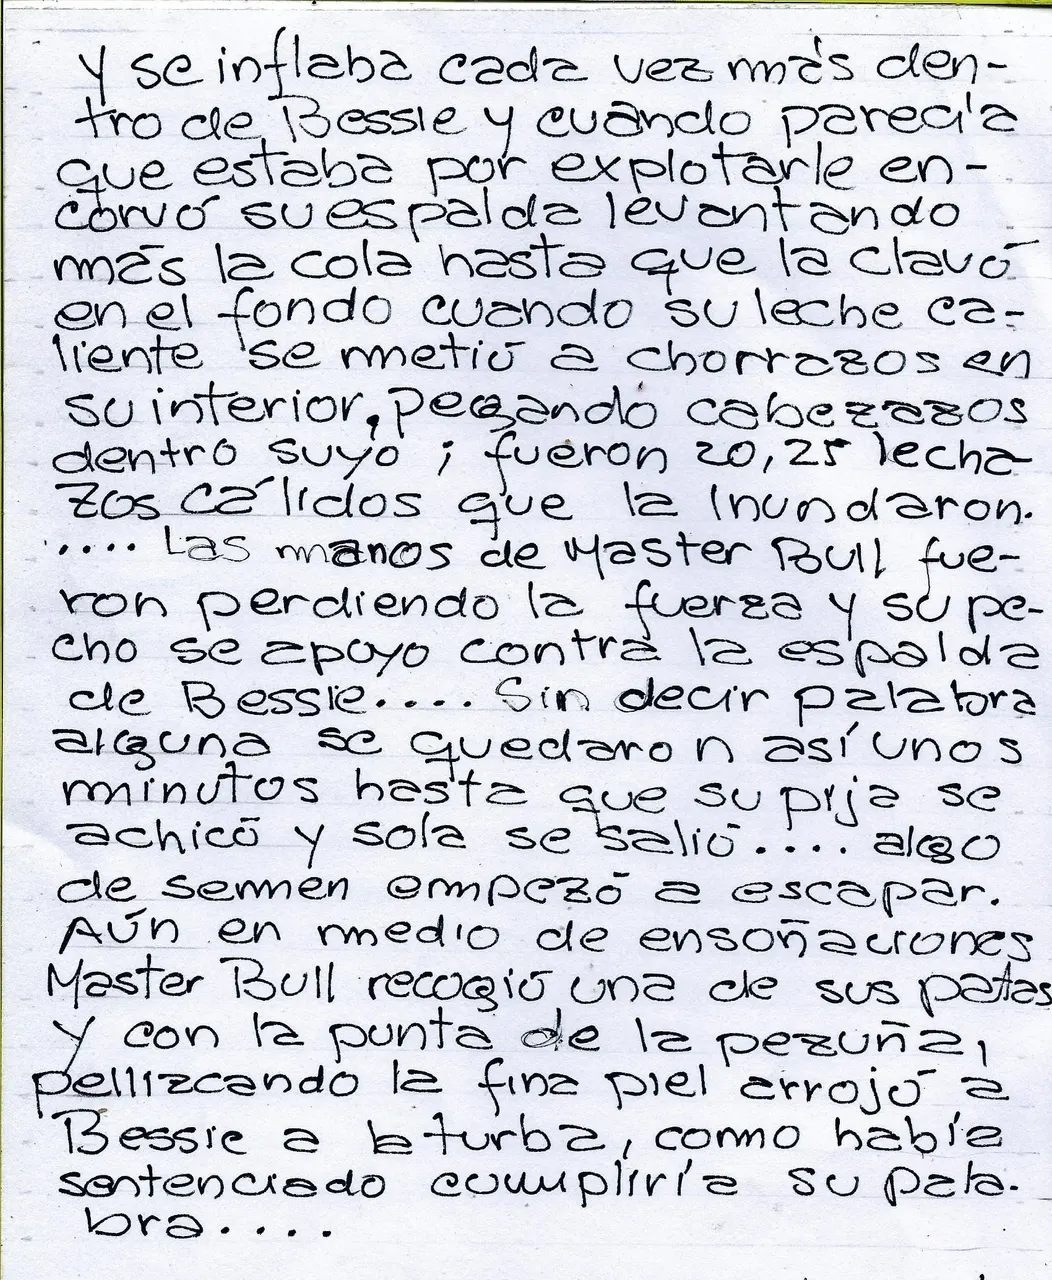 y se inflaba cada vez más den-
tro de Bessie y cuando parecía
que estaba por explotarle en-
corvó su espalda levantando
más la cola hasta que la clavó
en el fondo cuando su leche ca-
liente se metió a chorrazos en
su interior, pegando cabezazos
dentro suyo ; fueron 20, 25 lecha
zos cálidos que la inundaron.
.... Las manos de Master Bull fue-
ron perdiendo la fuerza y su pe-
cho se apoyo contra la espalda
de Bessie.... Sin decir palabra
alguna se quedaron así unos
minutos hasta que su pija se
achicó y sola se salió.... algo
de semen empezó a escapar.
Aún en medio de ensoñaciones
Master Bull recogió una de sus patas
y con la punta de la pezuña,
pellizcando la fina piel arrojó a
Bessie a la turba, como había
sentenciado cumpliría su pala-
bra....